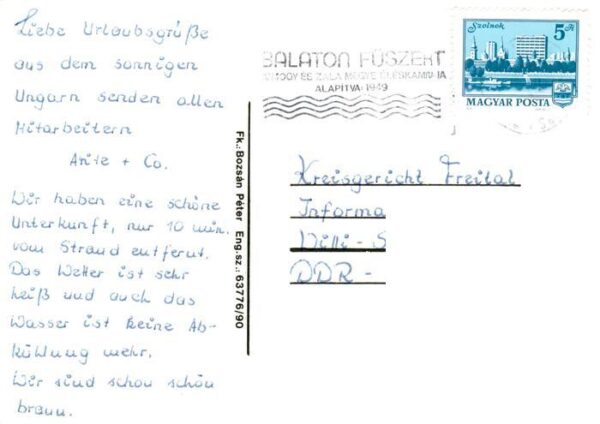 Liebe Urlaubsgrüße
aus dem sonnigen
Ungarn senden allen
Mitarbeitern
Anite + Co.
Wir haben eine schöne
Unterkunft, nur 10 min.
vom Strand entfernt.
Das Wetter ist sehr
heiß und auch das
Wasser ist keine Ab-
kühlung mehr.
Wir sind schon schön
braun.
Fk.: Bozsán Péter Eng.sz.: 63776/90
BALATON FŰSZÉRT
ALAPÍTVA: 1949
Szolnok
5 Ft
MAGYAR POSTA
Kreisgericht Freital
Informa
Willi - S
DDR -